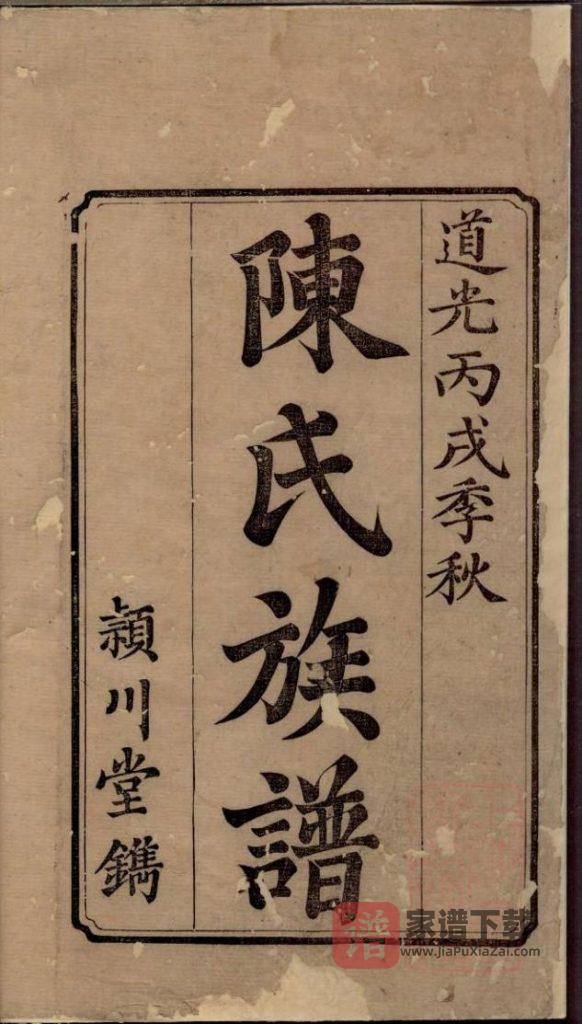 道光丙戌季秋
陳氏族譜
頴川堂鐫
谱
家谱下载
www.JiaPuXiaZai.com